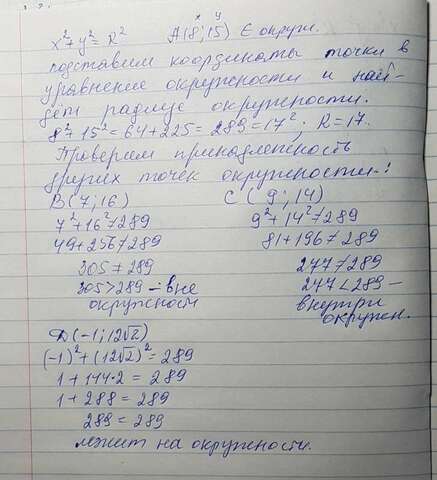 x y
x²+y²=R² A(8;15) ∈ окружн.
подставим координаты точки в
уравнение окружности и най-
дём радиус окружности.
8²+15²=64+225=289=17²; R=17.
Проверим принадлежность
других точек окружности:
B(7;16) C(9;14)
7²+16²≠289 9²+14²≠289
49+256≠289 81+196≠289
305≠289 277≠289
305>289 - вне 277<289 -
окружности внутри
окружн.
D(-1;12√2)
(-1)²+(12√2)²=289
1+144·2=289
1+288=289
289=289
лежит на окружности.